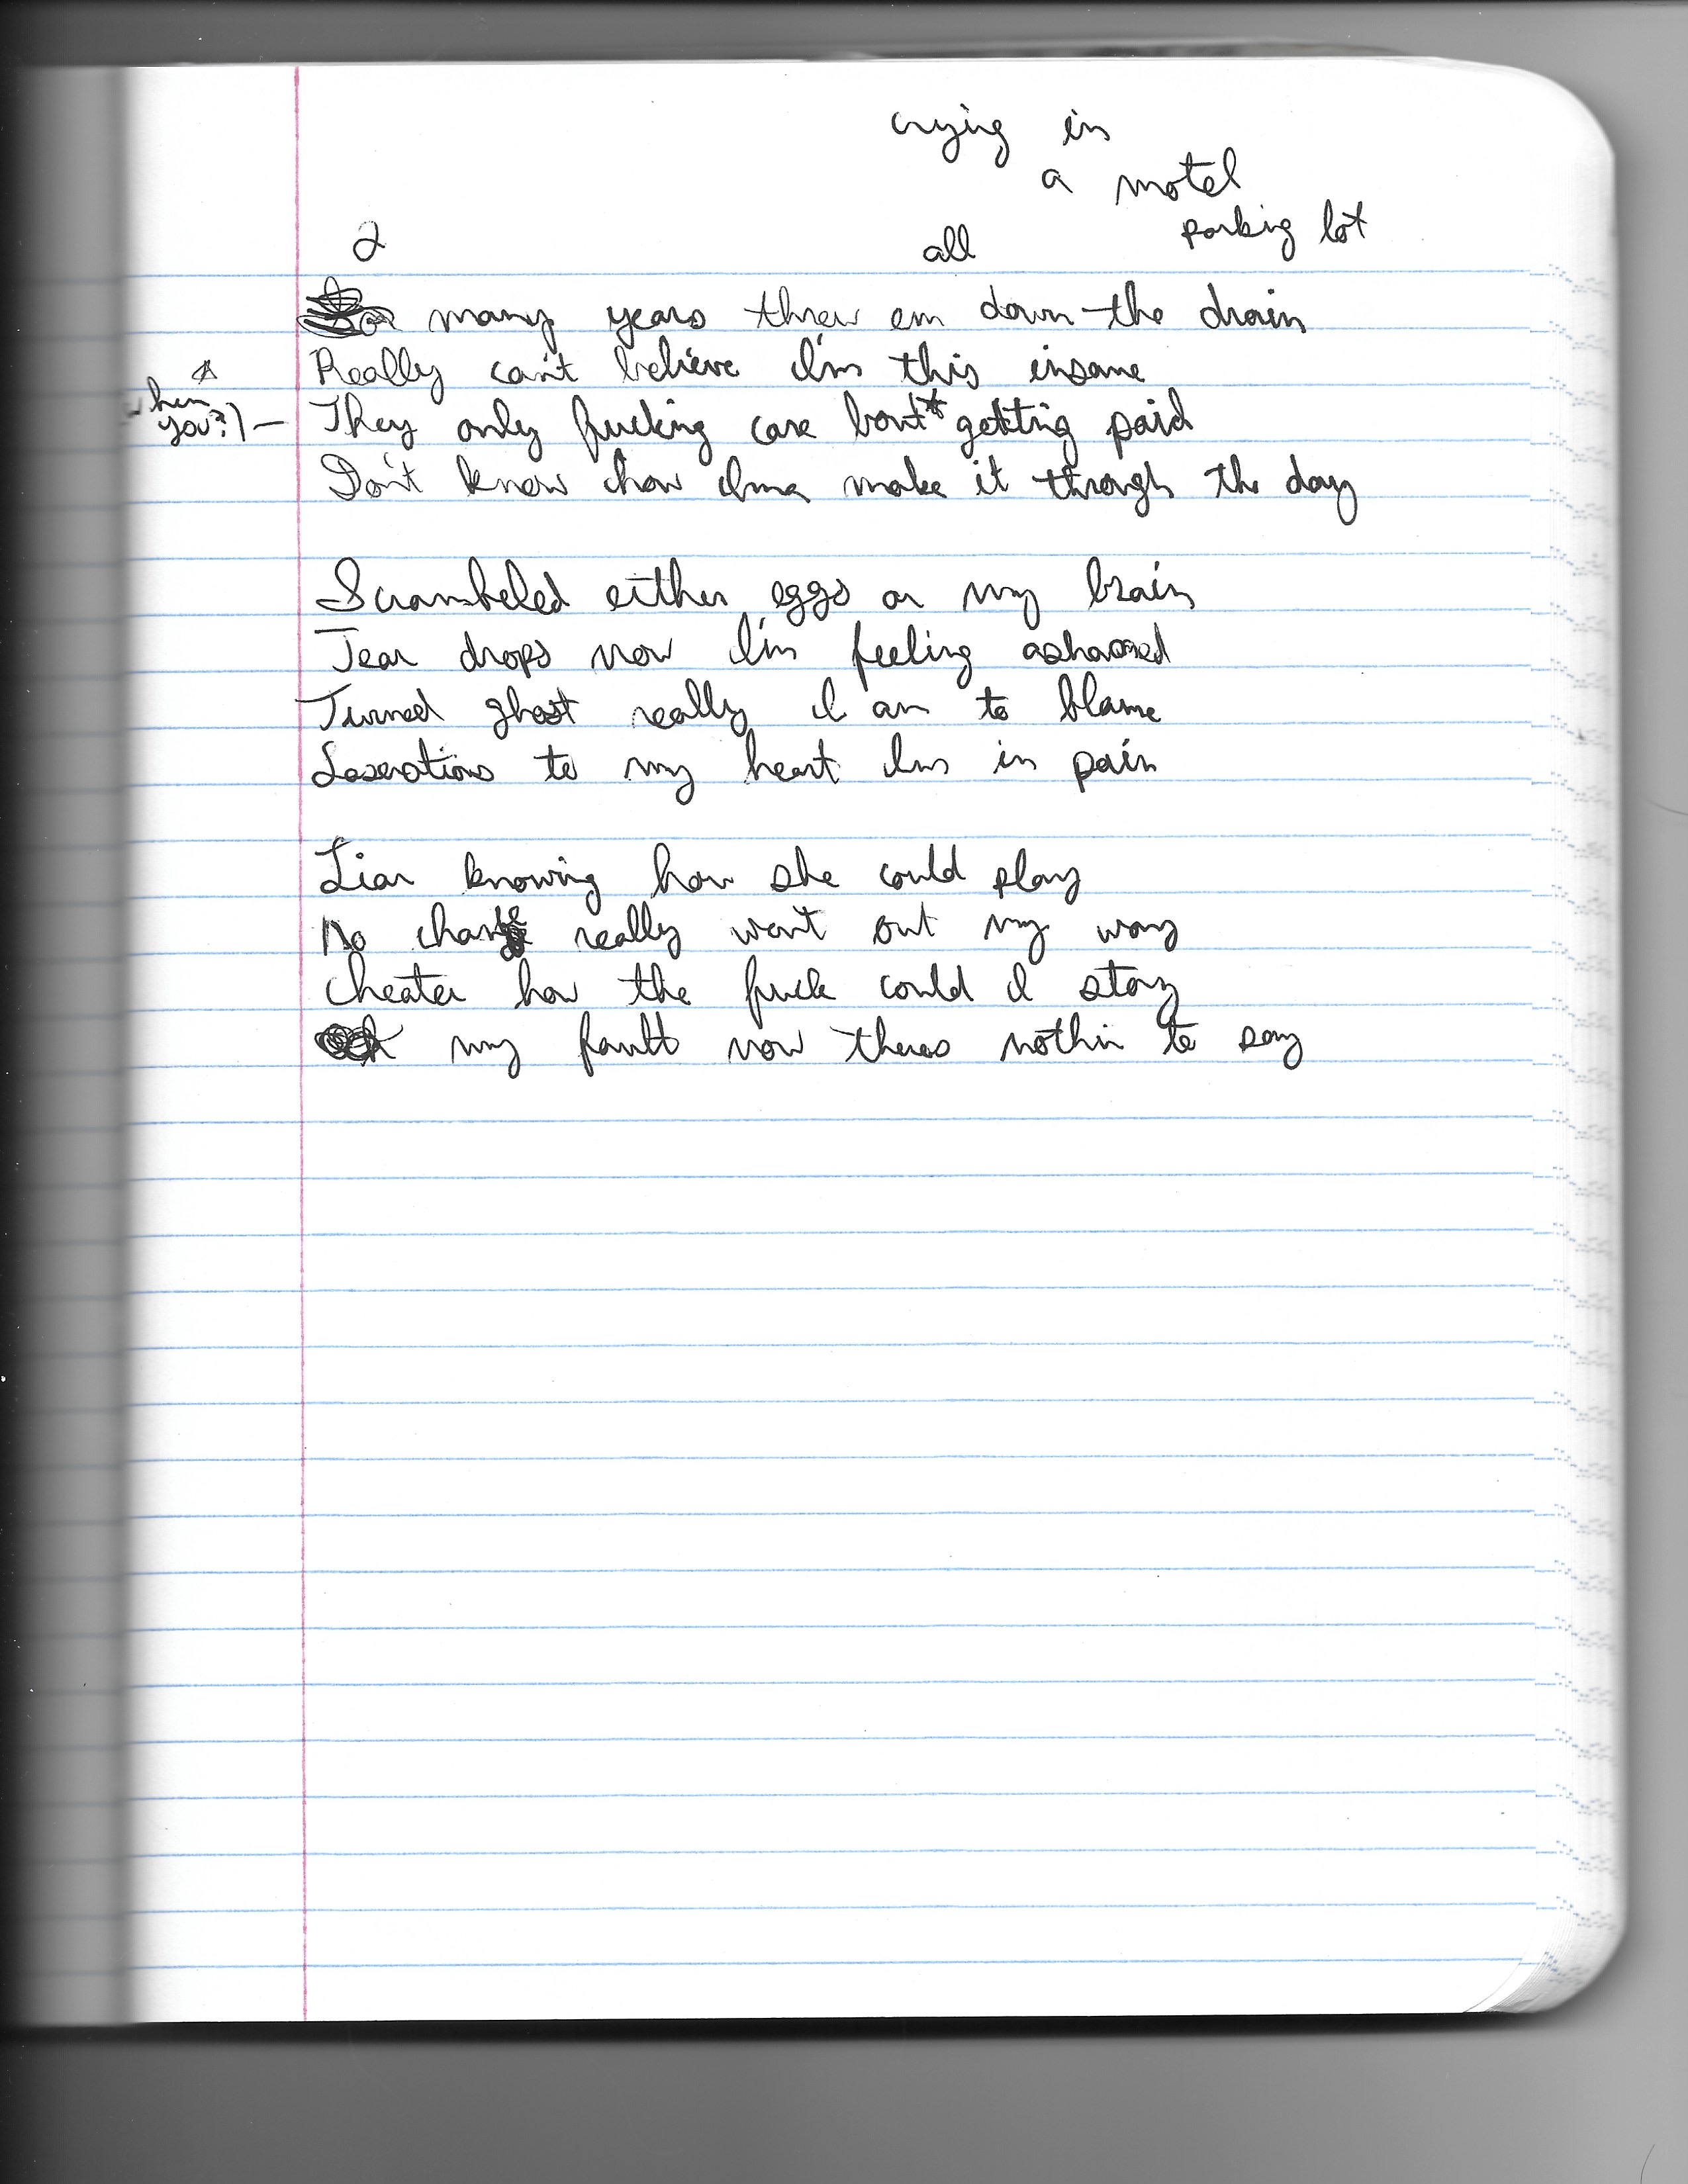 crying in
a motel
parking lot
2 all
many years threw em down the drain
Really can't believe I'm this insane
when
you?) —
They only fucking care bout* getting paid
Don't know how Ima make it through the day
Scrambeled either eggs or my brain
Tear drops now I'm feeling ashamed
Turned ghost really I am to blame
Laserations to my heart Im in pain
Liar knowing how she could play
No change really went out my way
Cheater how the fuck could I stay
my fault now theres nothin to say